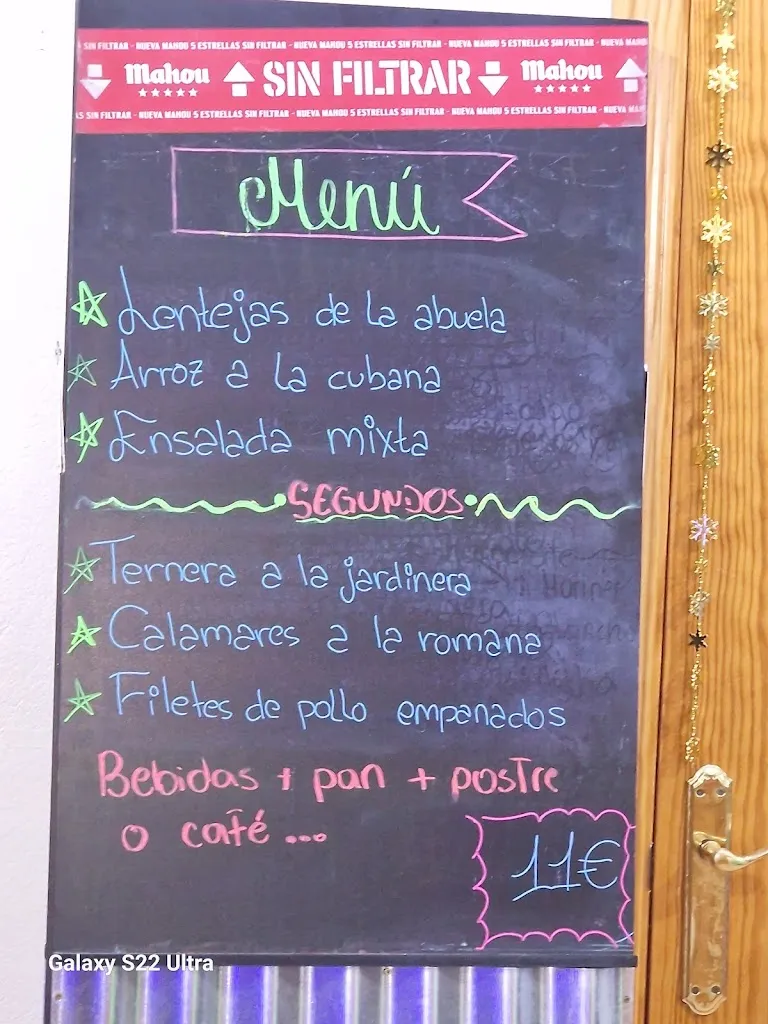 SIN FILTRAR - NUEVA MAHOU 5 ESTRELLAS SIN FILTRAR - NUEVA MAHOU 5 ESTRELLAS SIN FILTRAR - NUEVA MAHOU 5 ESTRELLAS SIN FILTRAR - NUEVA
Mahou SIN FILTRAR Mahou
SIN FILTRAR - NUEVA MAHOU 5 ESTRELLAS SIN FILTRAR - NUEVA MAHOU 5 ESTRELLAS SIN FILTRAR - NUEVA MAHOU 5 ESTRELLAS SIN FILTRAR - NUEVA
Menú
Lentejas de la abuela
Arroz a la cubana
Ensalada mixta
SEGUNDOS
Ternera a la jardinera
Calamares a la romana
Filetes de pollo empanados
Bebidas + pan + postre
o café...
11€
Galaxy S22 Ultra